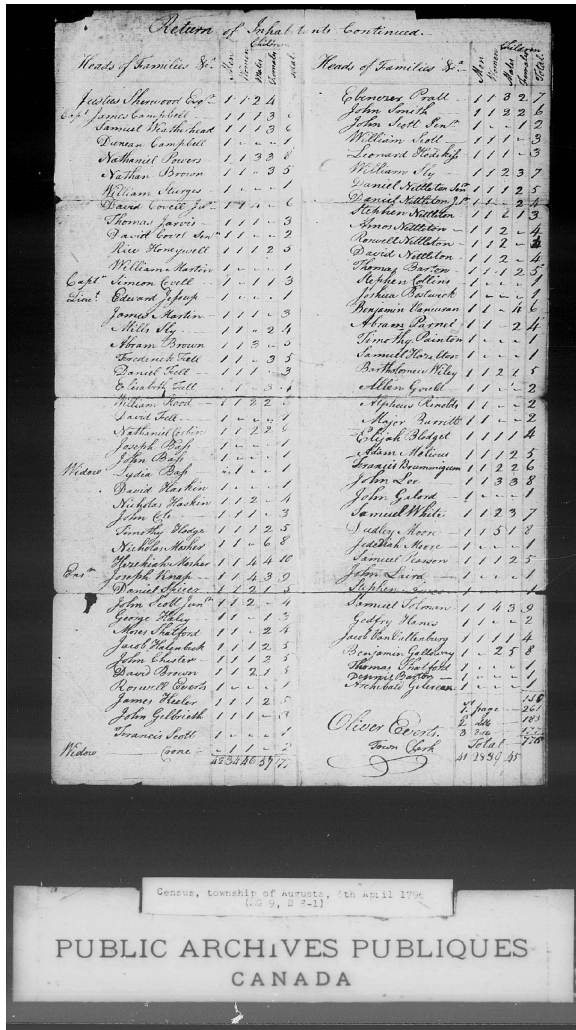 Return of Inhabitants Continued.
Heads of Families &c. Men Women Children Males Females Total
Justus Sherwood Esqr. 1 1 2 4
Capt James Campbell 1 1 1 3
Samuel Weatherhead 1 1 1 3 6
Duncan Campbell 1 - - - 1
Nathaniel Powers 1 1 3 3 8
Nathan Brown 1 1 - 3 5
William Sturges 1 - - - 1
David Covell Junr
Thomas Jarvis 1 1 - - 3
David Covel Senr 1 1 - - 2
Rice Honeywell 1 1 1 2 5
William Martin 1 - - - 1
Captn Simeon Covell 1 - 1 1 3
Lieut. Edward Jessup 1 - - - 1
James Martin 1 1 1 - 3
Mills Sly 1 1 - 2 4
Abram Brown 1 1 3 - 5
Frederick Fell 1 1 - 3 5
Daniel Fell 1 1 - - 3
Elizabeth Fell
William Hood 1 1 2 2 6
David Fell
Nathaniel 1 1 2 2 6
Joseph Bass 1 - - - 1
John Bass 1 - - - 1
Widow Lydia Bass - 1 - - 1
David Haskin 1 - - - 1
Nicholas Haskin 1 1 2 - 4
John 1 1 1 - 3
Timothy Hodge 1 1 1 2 5
Nicholas Mosher 1 1 - 6 8
Hezekiah Mosher 1 1 4 4 10
Ensn Joseph Knap 1 1 4 3 9
Daniel Spicer 1 1 2 1 5
John Scott Junr 1 1 2 - 4
George Haley 1 1 - 1 3
Moses Shalford 1 1 - 2 4
Jacob Halenbeck 1 1 1 2 5
John Chester 1 1 1 2 5
David Brown 1 1 2 1 5
Roswell Everts 1 - - - 1
James Heeler 1 1 1 2 5
John Gilbrieth 1 1 1 - 3
Francis Scott 1 - - - 1
Widow Coone - 1 1 - 2
42 34 46 57
Heads of Families &c. Men Women Children Males Females Total
Ebenezer Pratt 1 1 3 2 7
John Smith 1 1 2 2 6
John Scott Senr 1 - - 1 2
William Scott 1 1 1 - 3
Leonard Hodskiss 1 1 1 - 3
William Sly 1 1 2 3 7
Daniel Nettleton Senr 1 1 1 2 5
Daniel Nettleton Jr 1 1 - 2 4
Stephen Nettleton 1 1 - 1 3
Amos Nettleton 1 1 2 - 4
Roswell Nettleton 1 1 2 -
David Nettleton 1 1 2 - 4
Thomas Barton 1 1 1 2 5
Stephen Collins 1 - - - 1
Joshua Bostwick 1 - - - 1
Benjamin 1 1 - 4 6
Abram Parnel 1 1 - 2 4
Timothy Painton 1 - - - 1
Samuel Hazelton 1 - - - 1
Bartholomew Wiley 1 1 2 1 5
Allen Gould 1 1 - - 2
Alpheus Rinolds 1 1 - - 2
Major Burritt 1 1 - - 2
Elijah Blodget 1 1 1 1 4
Adam 1 1 1 2 5
Francis Brunningum 1 1 2 2 6
John Lee 1 1 3 3 8
John Galord 1 - - - 1
Samuel White 1 1 2 3 7
Dudley Moon 1 1 5 1 8
Jedediah Moore 1 - - - 1
Samuel Pearson 1 1 1 2 5
John Laird 1 - - - 1
Stephen
Samuel Solman 1 1 4 3 9
Gedfry Hanes 1 1 - - 2
Jacob VanDittenburg 1 1 1 1 4
Benjamin Galloway 1 - 2 5 8
Thomas Shalford 1 - - - 1
Dennis Barton 1 - - - 1
Archibald 1 - - - 1
155
1st page - 261
2 do 183
3
Total
Oliver Everts.
Town Clerk
41 28 39 45
Census, township of Augusta, 6th April 1796
(MG 9, D 8-1)
PUBLIC ARCHIVES PUBLIQUES
CANADA